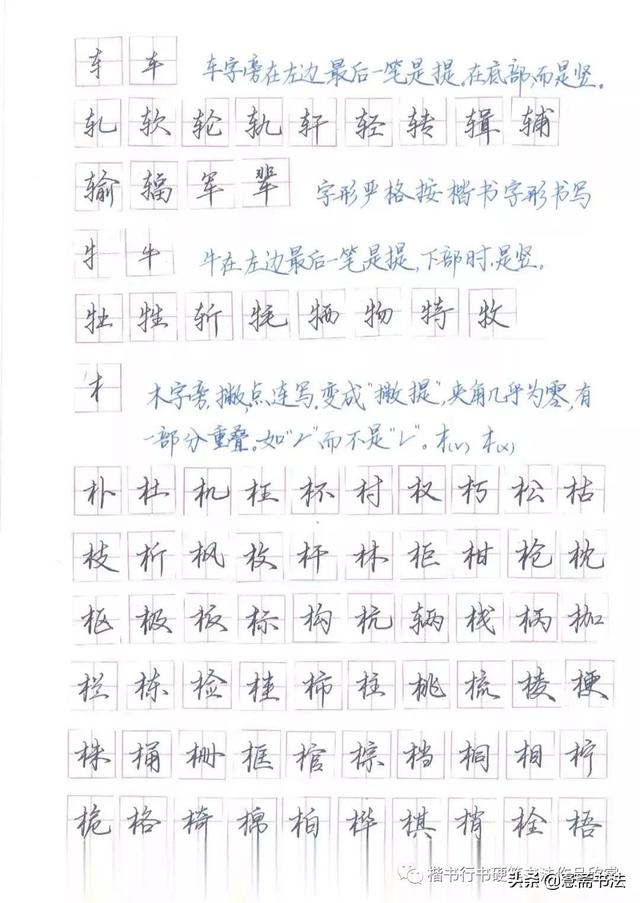 车 车 车字旁在左边最后一笔是提,在底部,而是竖。
轧 软 轮 轨 轩 轻 转 辑 辅
输 辐 军 辈 字形严格按楷书字形书写
牛 牛 牛在左边最后一笔是提,下部时,是竖。
牡 牲 犁 牦 牺 物 特 牧
木 木字旁,撇,点,连写,变成"撇提",夹角几乎为零,有
一部分重叠。如"㇀"而不是"㇄"。木(√) 木(×)
朴 杜 机 枉 杯 村 权 朽 松 枯
枝 析 枫 枚 杆 林 柜 柑 枪 枕
枢 极 板 标 构 杭 辆 栈 柄 枷
栏 栋 检 桂 柿 柱 桃 梳 棱 梗
株 桶 栅 框 棺 棕 档 桐 相 柠
桅 格 椅 棉 柏 桦 棋 梢 栓 梧
楷书行书硬笔书法作品欣赏
头条@慧斋书法